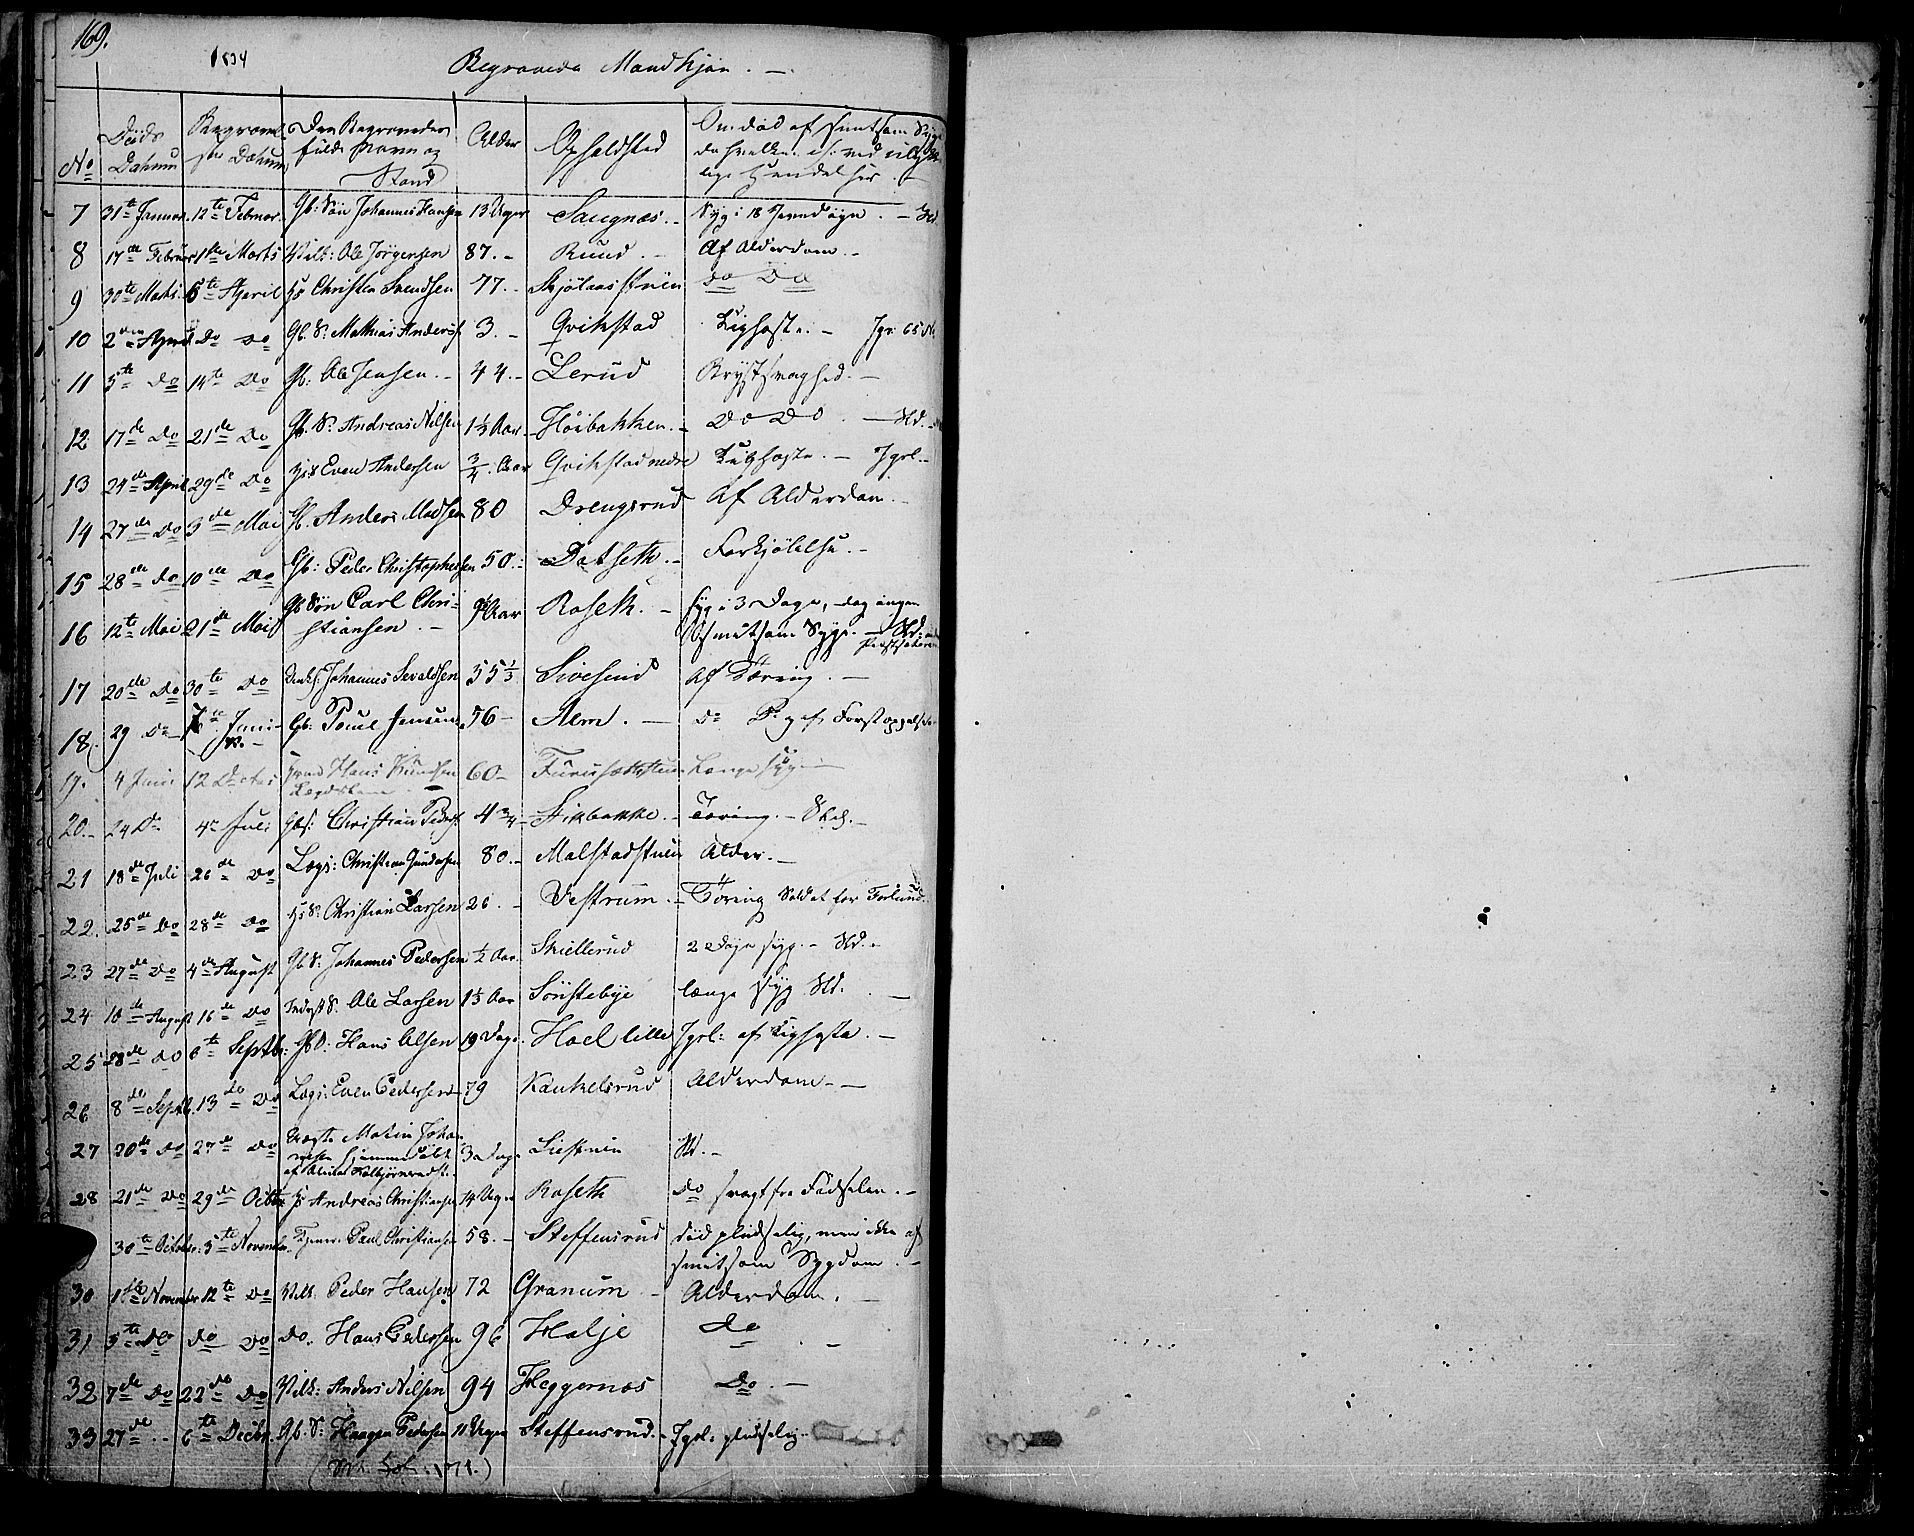 169.
1834
Begravede Mandkjøn. —
No
Døds Datum
Begravelses Datum
Den Begravedes fulde Navn og Stand
Alder
Opholdsted
Om død af smitsom Syge
7 31te Januar. 12te Februar. Gb: Søn Johannes Hansen 13 Uger Saugnæs. Syg i 18
8 17de Februar 1ste Marts Vilk: Ole Jörgensen 87. Ruud. Af Alderdom.
9 30te Marts. 6te April Hs Christen Svendsen 77. Skjölaas Do Do
10 2den April Do Do Gb. S: Mathias Anders. 3. Qvikstad Kighoste.
11 5te Do 14te Do Gb: Ole Jensen. 44. Lerud Brystsvaghed.
12 17de Do 21de Do Gb. S: Andreas Nilsen 1½ Aar. Höibakken. Do Do. Hd.
13 24de April 29de Do Hs S Even Andersen ¾ Aar Qvikstad nedre Kighoste.
14 27de Do 3de Mai G. Anders Madsen 80 Drengsrud Af Alderdom.
15 28de Do 10de Do Gb: Peder Christophersen 50. Datseth. Forkjölelse.
16 12te Mai 21de Mai Gb Søn Carl Christiansen. Aar Roseth. Syg i 3 Dage, dog ingen smitsom Syge. Hd:
17 20de Do 30te Do Johannes Sevaldsen 55½ Sivesind Af Tæring.
18. 29 Do 7te Juni Gb: Poul Jensen 56 Alm. Do
19. 4 Juni 12 Hans Knudsen 60 Længe syg
20. 24 Do 4 Juli Gbs: Christian Peders. 4¾ Stikbakke. Tæring.
21 18de Juli 26de Do Lægs: Christian Gundersen 80. Malstadstuen Alder.
22. 25de Do 28de Do Hs S: Christian Larsen 26. Vestrum. Tæring Soldat for
23 27de Do 4de August Gb S: Johannes Pedersen ½ Aar. Skiellerud 2 Dage syg. Hd.
24 10de August 16de Do Inderst S. Ole Larsen 1½ Aar Sönstebye længe syg Hd.
25 28de Do 6te Septbr: Gb S: Hans Olsen 19 Dage. Hoel lille af Kighoste.
26 8de Septb. 13de Do Lægs: Even Pedersen 79 Kankelsrud Alderdom
27 20de Do 27de Do Uægte Martin Johannesen hjemmedöbt 3 Dage Hd.
28 21de Do 29de Octbr Hs Andreas Christiansen 14 Uger Roseth Do svagt fra Födselen.
30te October. 5te November. Paul Christiansen 58. Steffensrud död pludselig, men ikke af smitsom Sygdom.
30 1ste November 12te Do Vilk. Peder Hansen 72 Granum Alderdom.
31 5te Do Do Do Do. Hans Pedersen 96 Halje do
32 7de Do 22de Do Vilk: Anders Nilsen 94 Heggernæs Do.
33 27de 6te Decbr. Gb. S: Haagen Pedersen 11 Uger Steffensrud. pludselig.